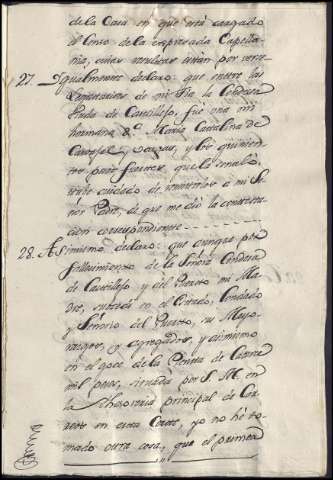 de la Casa en que está cargado
el Censo de la expresada Capella-
nia, cuias resultas están por verse
27. Igualmente declaro: que entre las
Legatarias de mi Tia la Condesa
Viuda de Castillejo, fue una mi
hermana D.ª Maria Catalina de
Carvajal y Vargas, y los quinien-
tos pesos fuertes que la señaló,
tube cuidado de remitirlos a mi Se-
ñor Padre, de que me dio la contexta-
cion correspondiente
28. Asimismo declaro: que aunque por
fallecimiento de la Señora Condesa
de Castillejo y del Puerto mi Ma-
dre, subcedi en el Estado, Condado
y Señorio del Puerto, su Mayo-
razgos, y agregados, y asimismo
en el goce de la Renta de
mil pesos, situada por S. M. en
la Thesoreria principal de
en esta Corte, yo no hé to-
mado otra cosa, que el primer